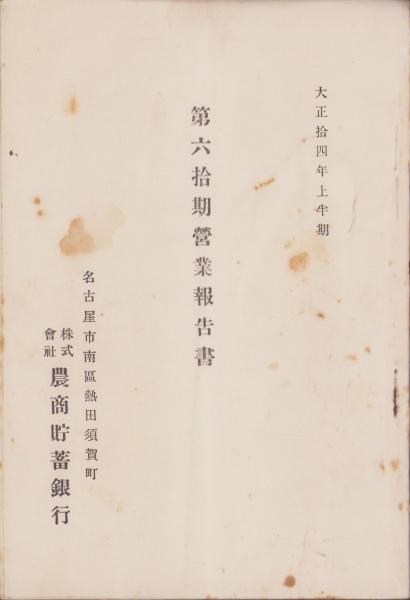 大正拾四年上半期
第六拾期營業報告書
名古屋市南區熱田須賀町
株式會社 農商貯蓄銀行